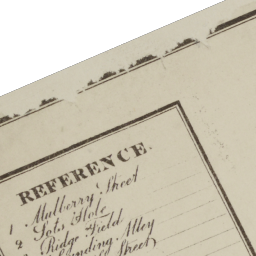 REFERENCE.
1 Mulberry Street
2 Lots Hole
Ridge Field
Alley
Street